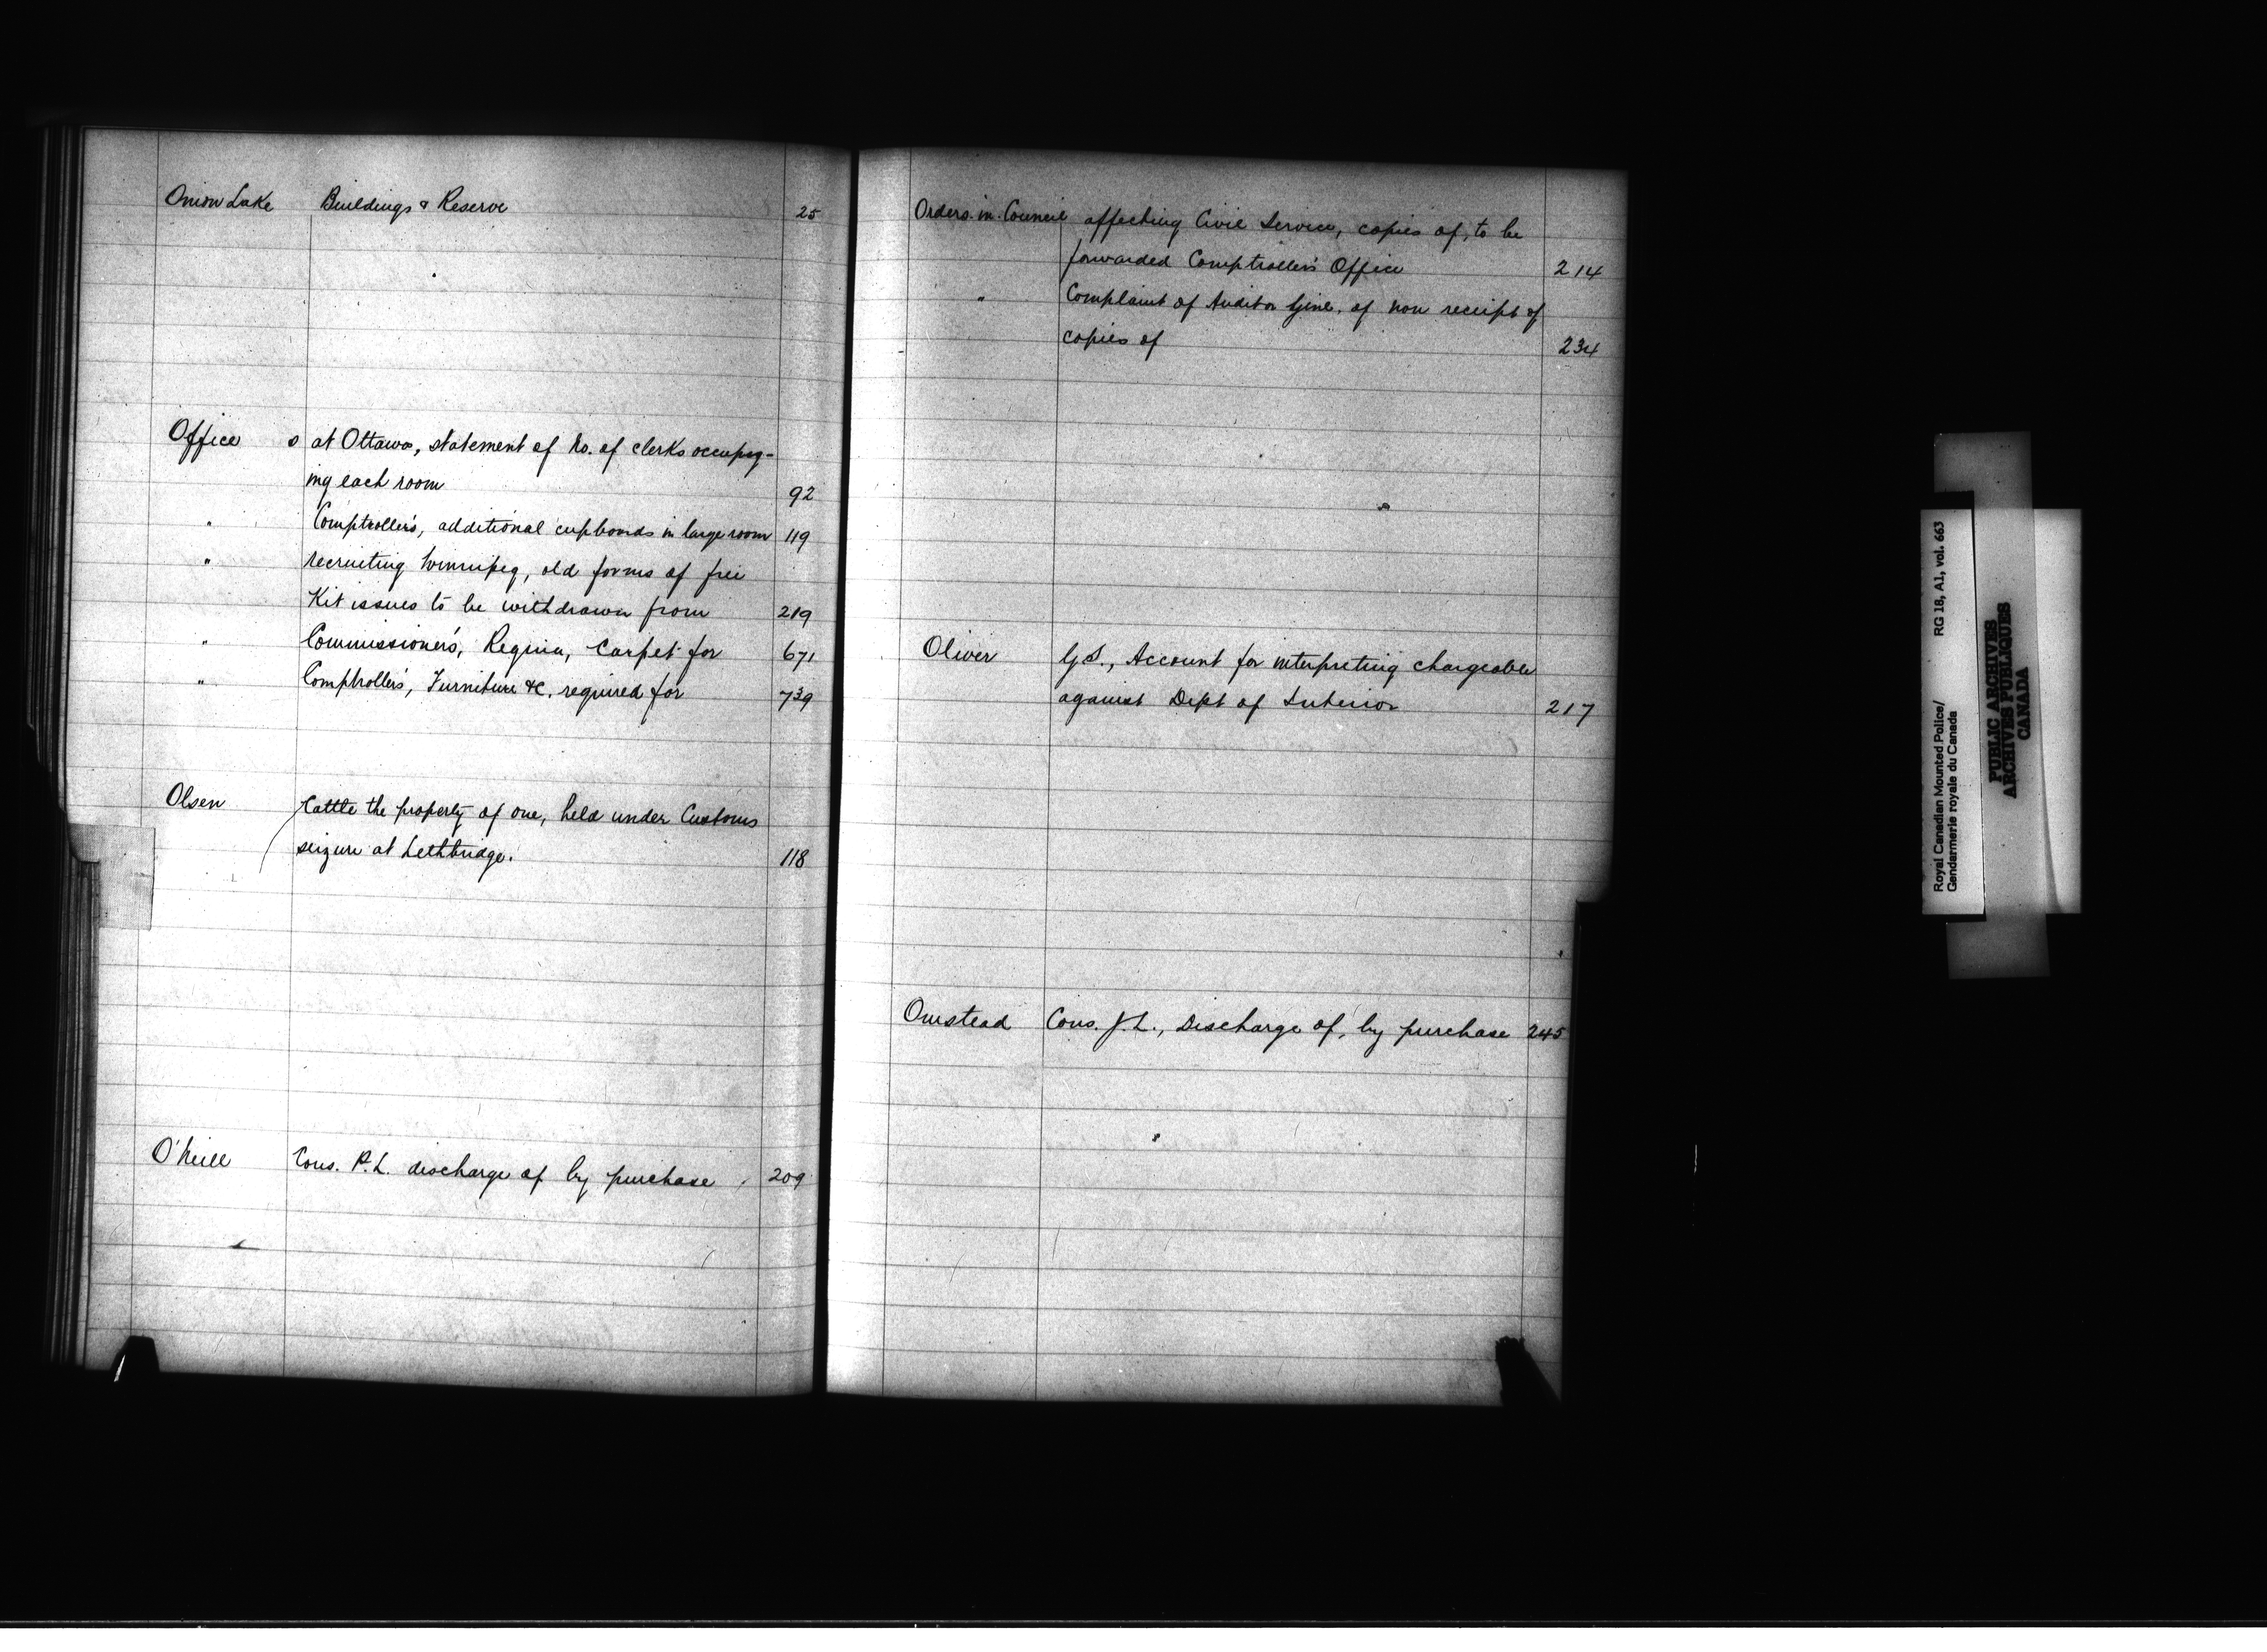 Onion Lake Buildings & Reserve 25
Office s at Ottawa, statement of No. of clerks occupy-
ing each room 92
" Comptroller's, additional cupboards in large room 119
" recruiting Winnipeg, old forms of free
Kit issues to be withdrawn from 219
" Commissioner's, Regina, Carpet for 671
" Comptroller's, Furniture &c. required for 739
Olsen Cattle the property of one, held under Customs
seizure at Lethbridge. 118
O'Neill Cons. P. L. discharge of by purchase 209
Orders in Council affecting Civil Service, copies of, to be
forwarded Comptroller's Office 214
" Complaint of Auditor Genl. of non receipt of
copies of 234
Oliver G.S., Account for interpreting chargeable
against Dept of Interior 217
Omstead Cons. J. L., Discharge of, by purchase 245
Royal Canadian Mounted Police/
Gendarmerie royale du Canada
RG 18, A1, vol. 663
PUBLIC ARCHIVES
ARCHIVES PUBLIQUES
CANADA